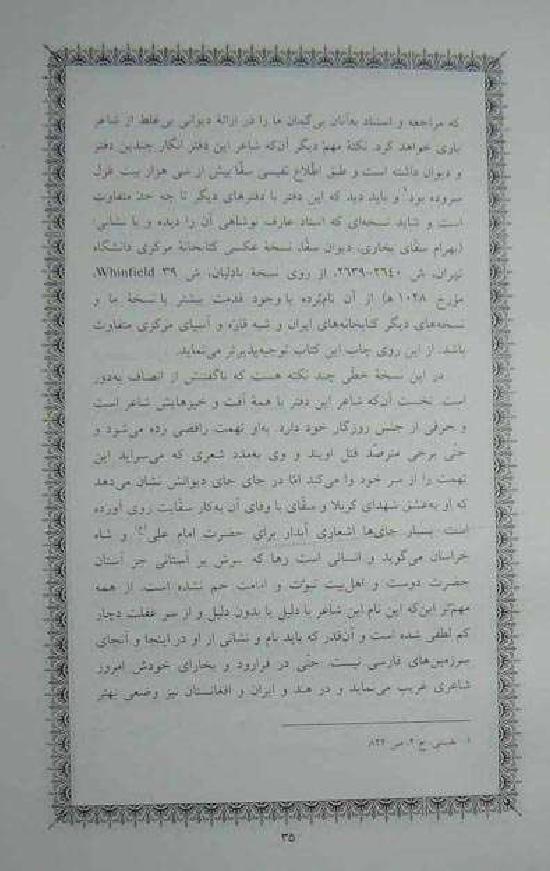 که مراجعه و استناد به‌آنان بی‌گمان ما را در ارائهٔ دیوانی بی‌غلط از شاعر
یاری خواهد کرد. نکتهٔ مهم دیگر آن‌که شاعر این دفتر انگار چندین دفتر
و دیوان داشته است و طبق اطّلاع نفیسی سقّا بیش از سی هزار بیت غزل
سروده بود۱ و باید دید که این دفتر با دفترهای دیگر تا چه حدّ متفاوت
است و شاید نسخه‌ای که استاد عارف نوشاهی آن را دیده و با نشانی:
(بهرام سقّای بخاری، دیوان سقّا، نسخهٔ عکسی کتابخانهٔ مرکزی دانشگاه
تهران، ش ۲۶۴۰-۲۶۳۹، از روی نسخهٔ بادلیان، ش ۳۹ Whinfield،
مؤرخ ۱۰۲۸ ه‍) از آن نام‌برده با وجود قدمت بیشتر با نسخهٔ ما و
نسخه‌های دیگر کتابخانه‌های ایران و شبه قارّه و آسیای مرکزی متفاوت
باشد. از این روی چاپ این کتاب توجیه‌پذیرتر می‌نماید.
در این نسخهٔ خطی چند نکته هست که ناگفتنش از انصاف به‌دور
است. نخست آن‌که شاعر این دفتر با همهٔ افت و خیزهایش شاعر است
و حرفی از جنس روزگار خود دارد. به‌او تهمت رافضی زده می‌شود و
حتّی برخی مترصّد قتل اویند و وی به‌مدد شعری که می‌سراید این
تهمت را از سر خود وا می‌کند امّا در جای جای دیوانش نشان می‌دهد
که او به‌عشق شهدای کربلا و سقّای با وفای آن به‌کار سقّایت روی آورده
است. بسیار جای‌ها اشعاری آبدار برای حضرت امام علی(ع) و شاه
خراسان می‌گوید و انسانی است رها که سرش بر آستانی جز آستان
حضرت دوست و اهل‌بیت نبوّت و امامت خم نشده است. از همه
مهم‌تر این‌که این نام این شاعر با دلیل یا بدون دلیل و از سر غفلت دچار
کم لطفی شده است و آن‌قدر که باید نام و نشانی از او در اینجا و آنجای
سرزمین‌های فارسی نیست. حتّی در فرارود و بخارای خودش امروز
شاعری غریب می‌نماید و در هند و ایران و افغانستان نیز وضعی بهتر
۱. نفیسی، ج ۲، ص
۳۵